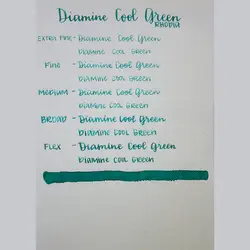 Diamine Cool Green
RHODIA
EXTRA FINE - Diamine Cool Green
DIAMINE COOL GREEN
FINE - Diamine Cool Green
DIAMINE COOL GREEN
MEDIUM - Diamine Cool Green
DIAMINE COOL GREEN
BROAD - Diamine Cool Green
DIAMINE COOL GREEN
FLEX - Diamine Cool Green
DIAMINE COOL GREEN